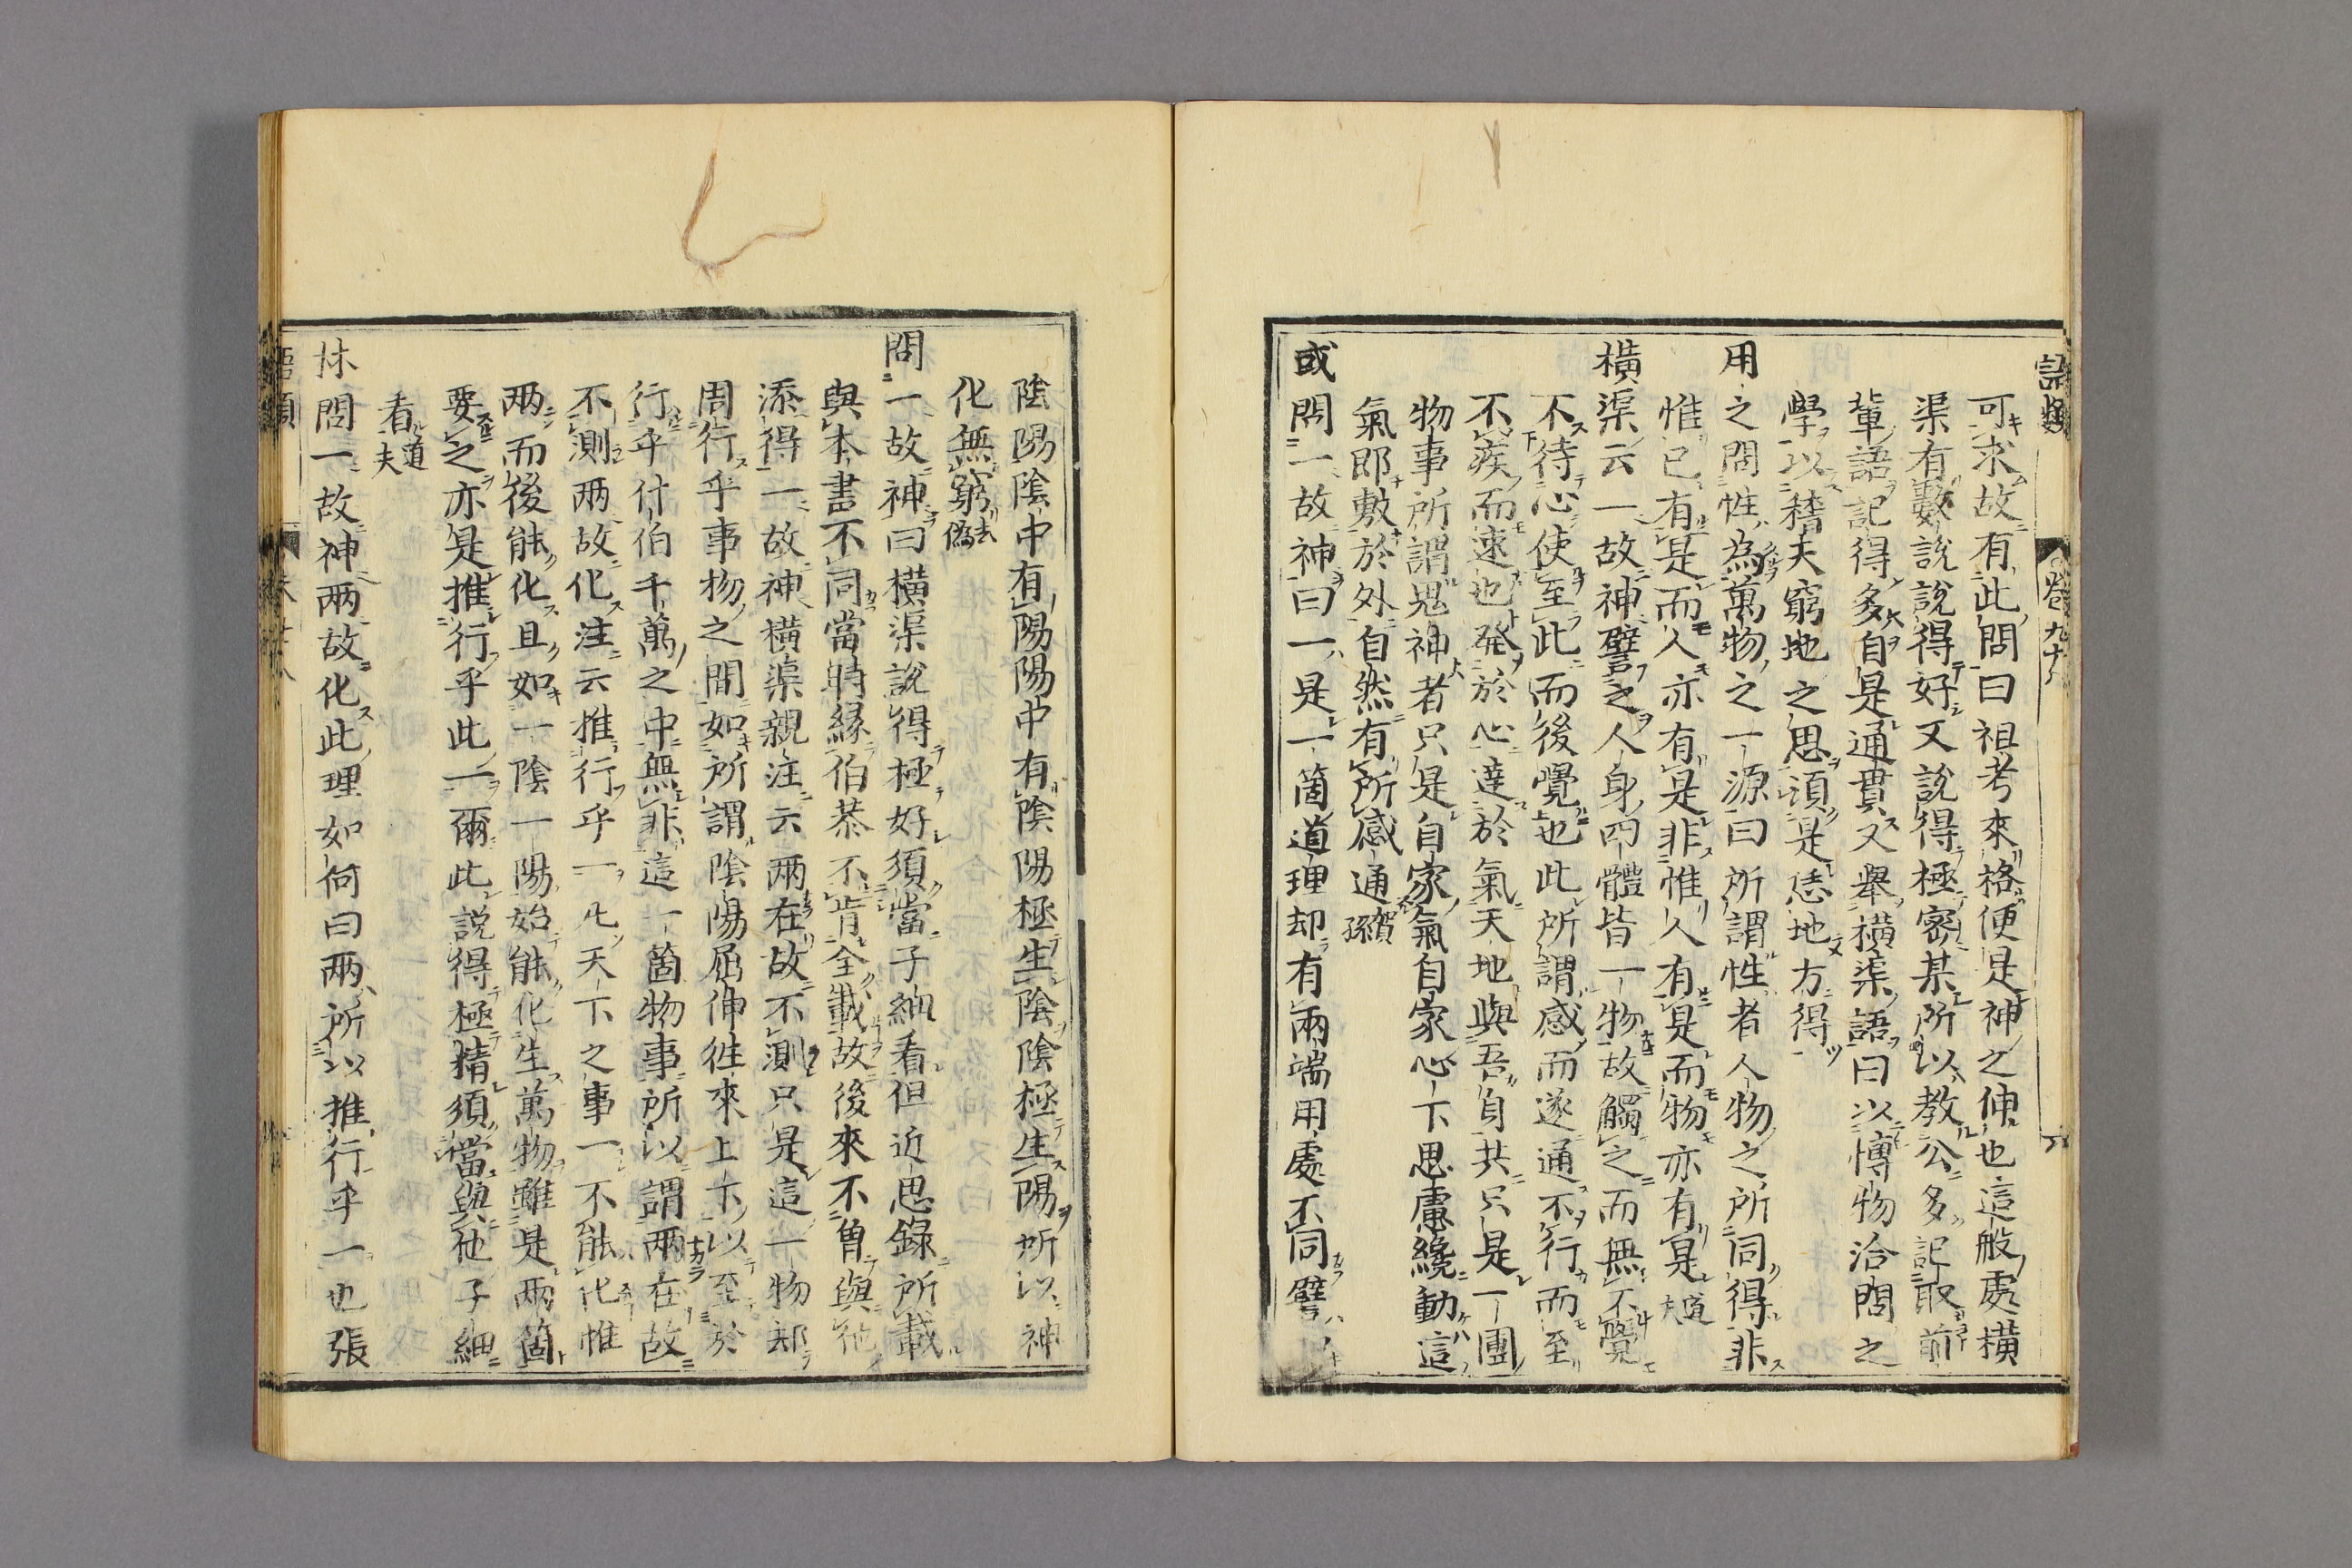 語類
卷九十八
六
可求故有此問曰祖考來格便是神之伸也這般處橫
渠有數說說得好又說得極密某所以教公多記取前
輩語記得多自是通貫又舉橫渠語曰以博物洽聞之
學以稽夫窮地之思須是恁地方得
用之問性為萬物之一源曰所謂性者人物之所同得非
惟已有是而人亦有是非惟人有是而物亦有是道夫
橫渠云一故神譬之人身四體皆一物故觸之而無不覺
不待心使至此而後覺也此所謂感而遂通不行而至
不疾而速也發於心達於氣天地與吾身共只是一團
物事所謂鬼神者只是自家氣自家心下思慮纔動這
氣即敷於外自然有所感通賀孫
或問一故神曰一是一箇道理却有兩端用處不同譬
陰陽陰中有陽陽中有陰陽極生陰陰極生陽所以神
化無窮去偽
問一故神曰橫渠說得極好須當子細看但近思錄所載
與本書不同當時緣伯恭不肯全載故後來不曾與他
添得一故神橫渠親注云兩在故不測只是這一物却
周行乎事物之間如所謂陰陽屈伸徃來上下以至於
行乎什伯千萬之中無非這一箇物事所以謂兩在故
不測两故化注云推行乎一凡天下之事一不能化惟
兩而後能化且如一陰一陽始能化生萬物雖是兩箇
要之亦是推行乎此一爾此說得極精須當與他子細
看道夫
林問一故神两故化此理如何曰兩所以推行乎一也張
語類